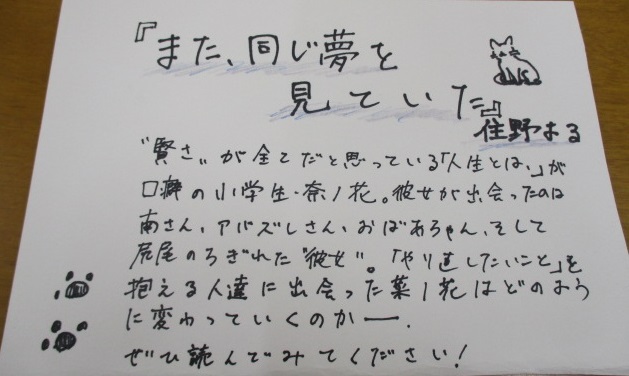 『また、同じ夢を
見ていた』
住野よる
"賢さ"が全てだと思っている「人生とは、」が
口癖の小学生・奈ノ花。彼女が出会ったのは
南さん、アバズレさん、おばあちゃん、そして
尻尾のちぎれた"彼女"。「やり直したいこと」を
抱える人達に出会った菜ノ花はどのよう
に変わっていくのかー.
ぜひ読んでみてください!